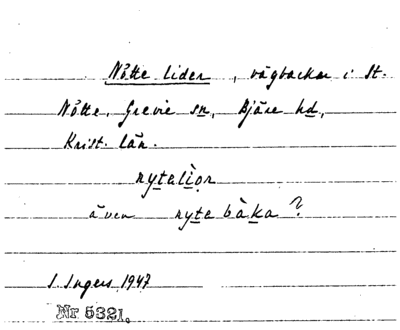 Nötte lider, vägbackar i St.
Nötte, Grevie sn, Bjäre hd,
Krist. län.
nytelìọr
även nyte bàka?
I. Ingers 1947
Nr 5321.